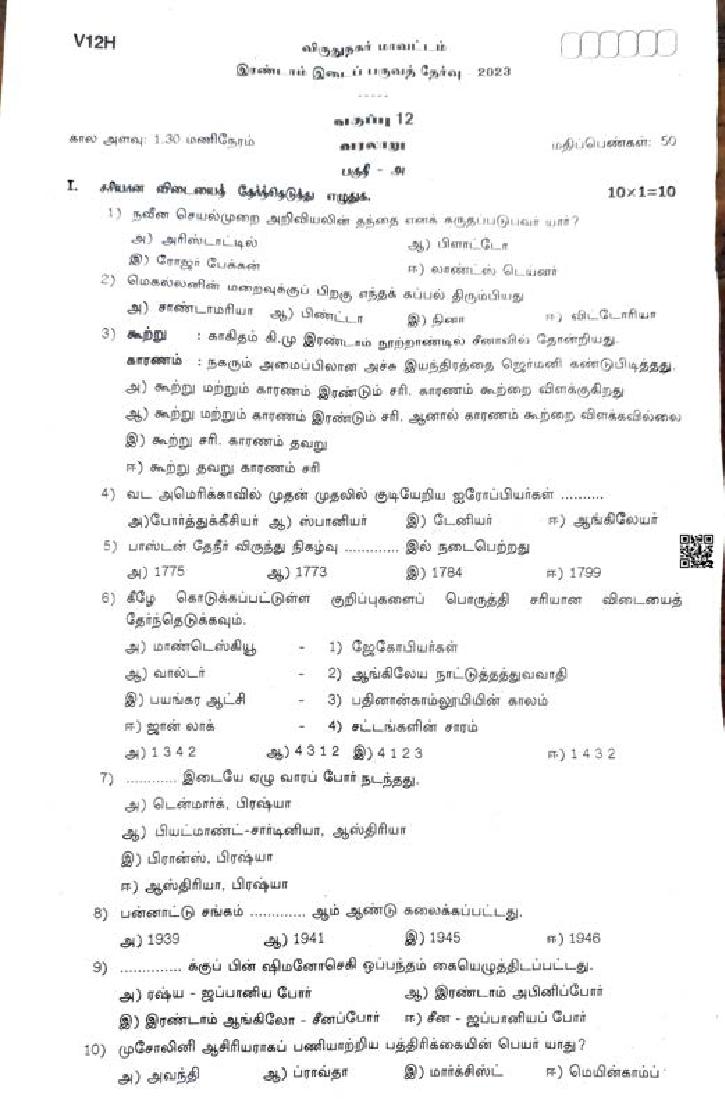 V12H
விருதுநகர் மாவட்டம்
இரண்டாம் இடைப் பருவத் தேர்வு - 2023
-----
வகுப்பு 12
கால அளவு: 1.30 மணிநேரம் வரலாறு மதிப்பெண்கள்: 50
பகுதி - அ
I. சரியான விடையைத் தேர்ந்தெடுத்து எழுதுக. 10×1=10
1) நவீன செயல்முறை அறிவியலின் தந்தை எனக் கருதப்படுபவர் யார்?
அ) அரிஸ்டாட்டில் ஆ) பிளாட்டோ
இ) ரோஜர் பேக்கன் ஈ) லாண்ட்ஸ் டெயனர்
2) மெகல்லனின் மறைவுக்குப் பிறகு எந்தக் கப்பல் திரும்பியது
அ) சாண்டாமரியா ஆ) பிண்ட்டா இ) நினா ஈ) விட்டோரியா
3) கூற்று : காகிதம் கி.மு இரண்டாம் நூற்றாண்டில் சீனாவில் தோன்றியது.
காரணம் : நகரும் அமைப்பிலான அச்சு இயந்திரத்தை ஜெர்மனி கண்டுபிடித்தது.
அ) கூற்று மற்றும் காரணம் இரண்டும் சரி. காரணம் கூற்றை விளக்குகிறது
ஆ) கூற்று மற்றும் காரணம் இரண்டும் சரி. ஆனால் காரணம் கூற்றை விளக்கவில்லை
இ) கூற்று சரி. காரணம் தவறு
ஈ) கூற்று தவறு காரணம் சரி
4) வட அமெரிக்காவில் முதன் முதலில் குடியேறிய ஐரோப்பியர்கள் ..........
அ)போர்த்துக்கீசியர் ஆ) ஸ்பானியர் இ) டேனியர் ஈ) ஆங்கிலேயர்
5) பாஸ்டன் தேநீர் விருந்து நிகழ்வு ............. இல் நடைபெற்றது
அ) 1775 ஆ) 1773 இ) 1784 ஈ) 1799
6) கீழே கொடுக்கப்பட்டுள்ள குறிப்புகளைப் பொருத்தி சரியான விடையைத்
தேர்ந்தெடுக்கவும்.
அ) மாண்டெஸ்கியூ - 1) ஜேகோபியர்கள்
ஆ) வால்டர் - 2) ஆங்கிலேய நாட்டுத்தத்துவவாதி
இ) பயங்கர ஆட்சி - 3) பதினான்காம்லூயியின் காலம்
ஈ) ஜான் லாக் - 4) சட்டங்களின் சாரம்
அ) 1 3 4 2 ஆ) 4 3 1 2 இ) 4 1 2 3 ஈ) 1 4 3 2
7) ............ இடையே ஏழு வாரப் போர் நடந்தது.
அ) டென்மார்க், பிரஷ்யா
ஆ) பியட்மாண்ட்-சார்டினியா, ஆஸ்திரியா
இ) பிரான்ஸ், பிரஷ்யா
ஈ) ஆஸ்திரியா, பிரஷ்யா
8) பன்னாட்டு சங்கம் ............. ஆம் ஆண்டு கலைக்கப்பட்டது.
அ) 1939 ஆ) 1941 இ) 1945 ஈ) 1946
9) .............. க்குப் பின் ஷிமனோசெகி ஒப்பந்தம் கையெழுத்திடப்பட்டது.
அ) ரஷ்ய - ஜப்பானிய போர் ஆ) இரண்டாம் அபினிப்போர்
இ) இரண்டாம் ஆங்கிலோ - சீனப்போர் ஈ) சீன - ஜப்பானியப் போர்
10) முசோலினி ஆசிரியராகப் பணியாற்றிய பத்திரிக்கையின் பெயர் யாது?
அ) அவந்தி ஆ) ப்ராவ்தா இ) மார்க்சிஸ்ட் ஈ) மெயின்காம்ப்